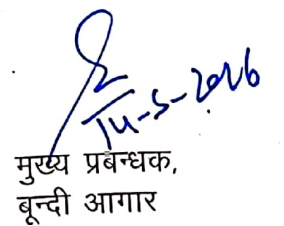 14-5-2026
मुख्य प्रबन्धक,
बून्दी आगार